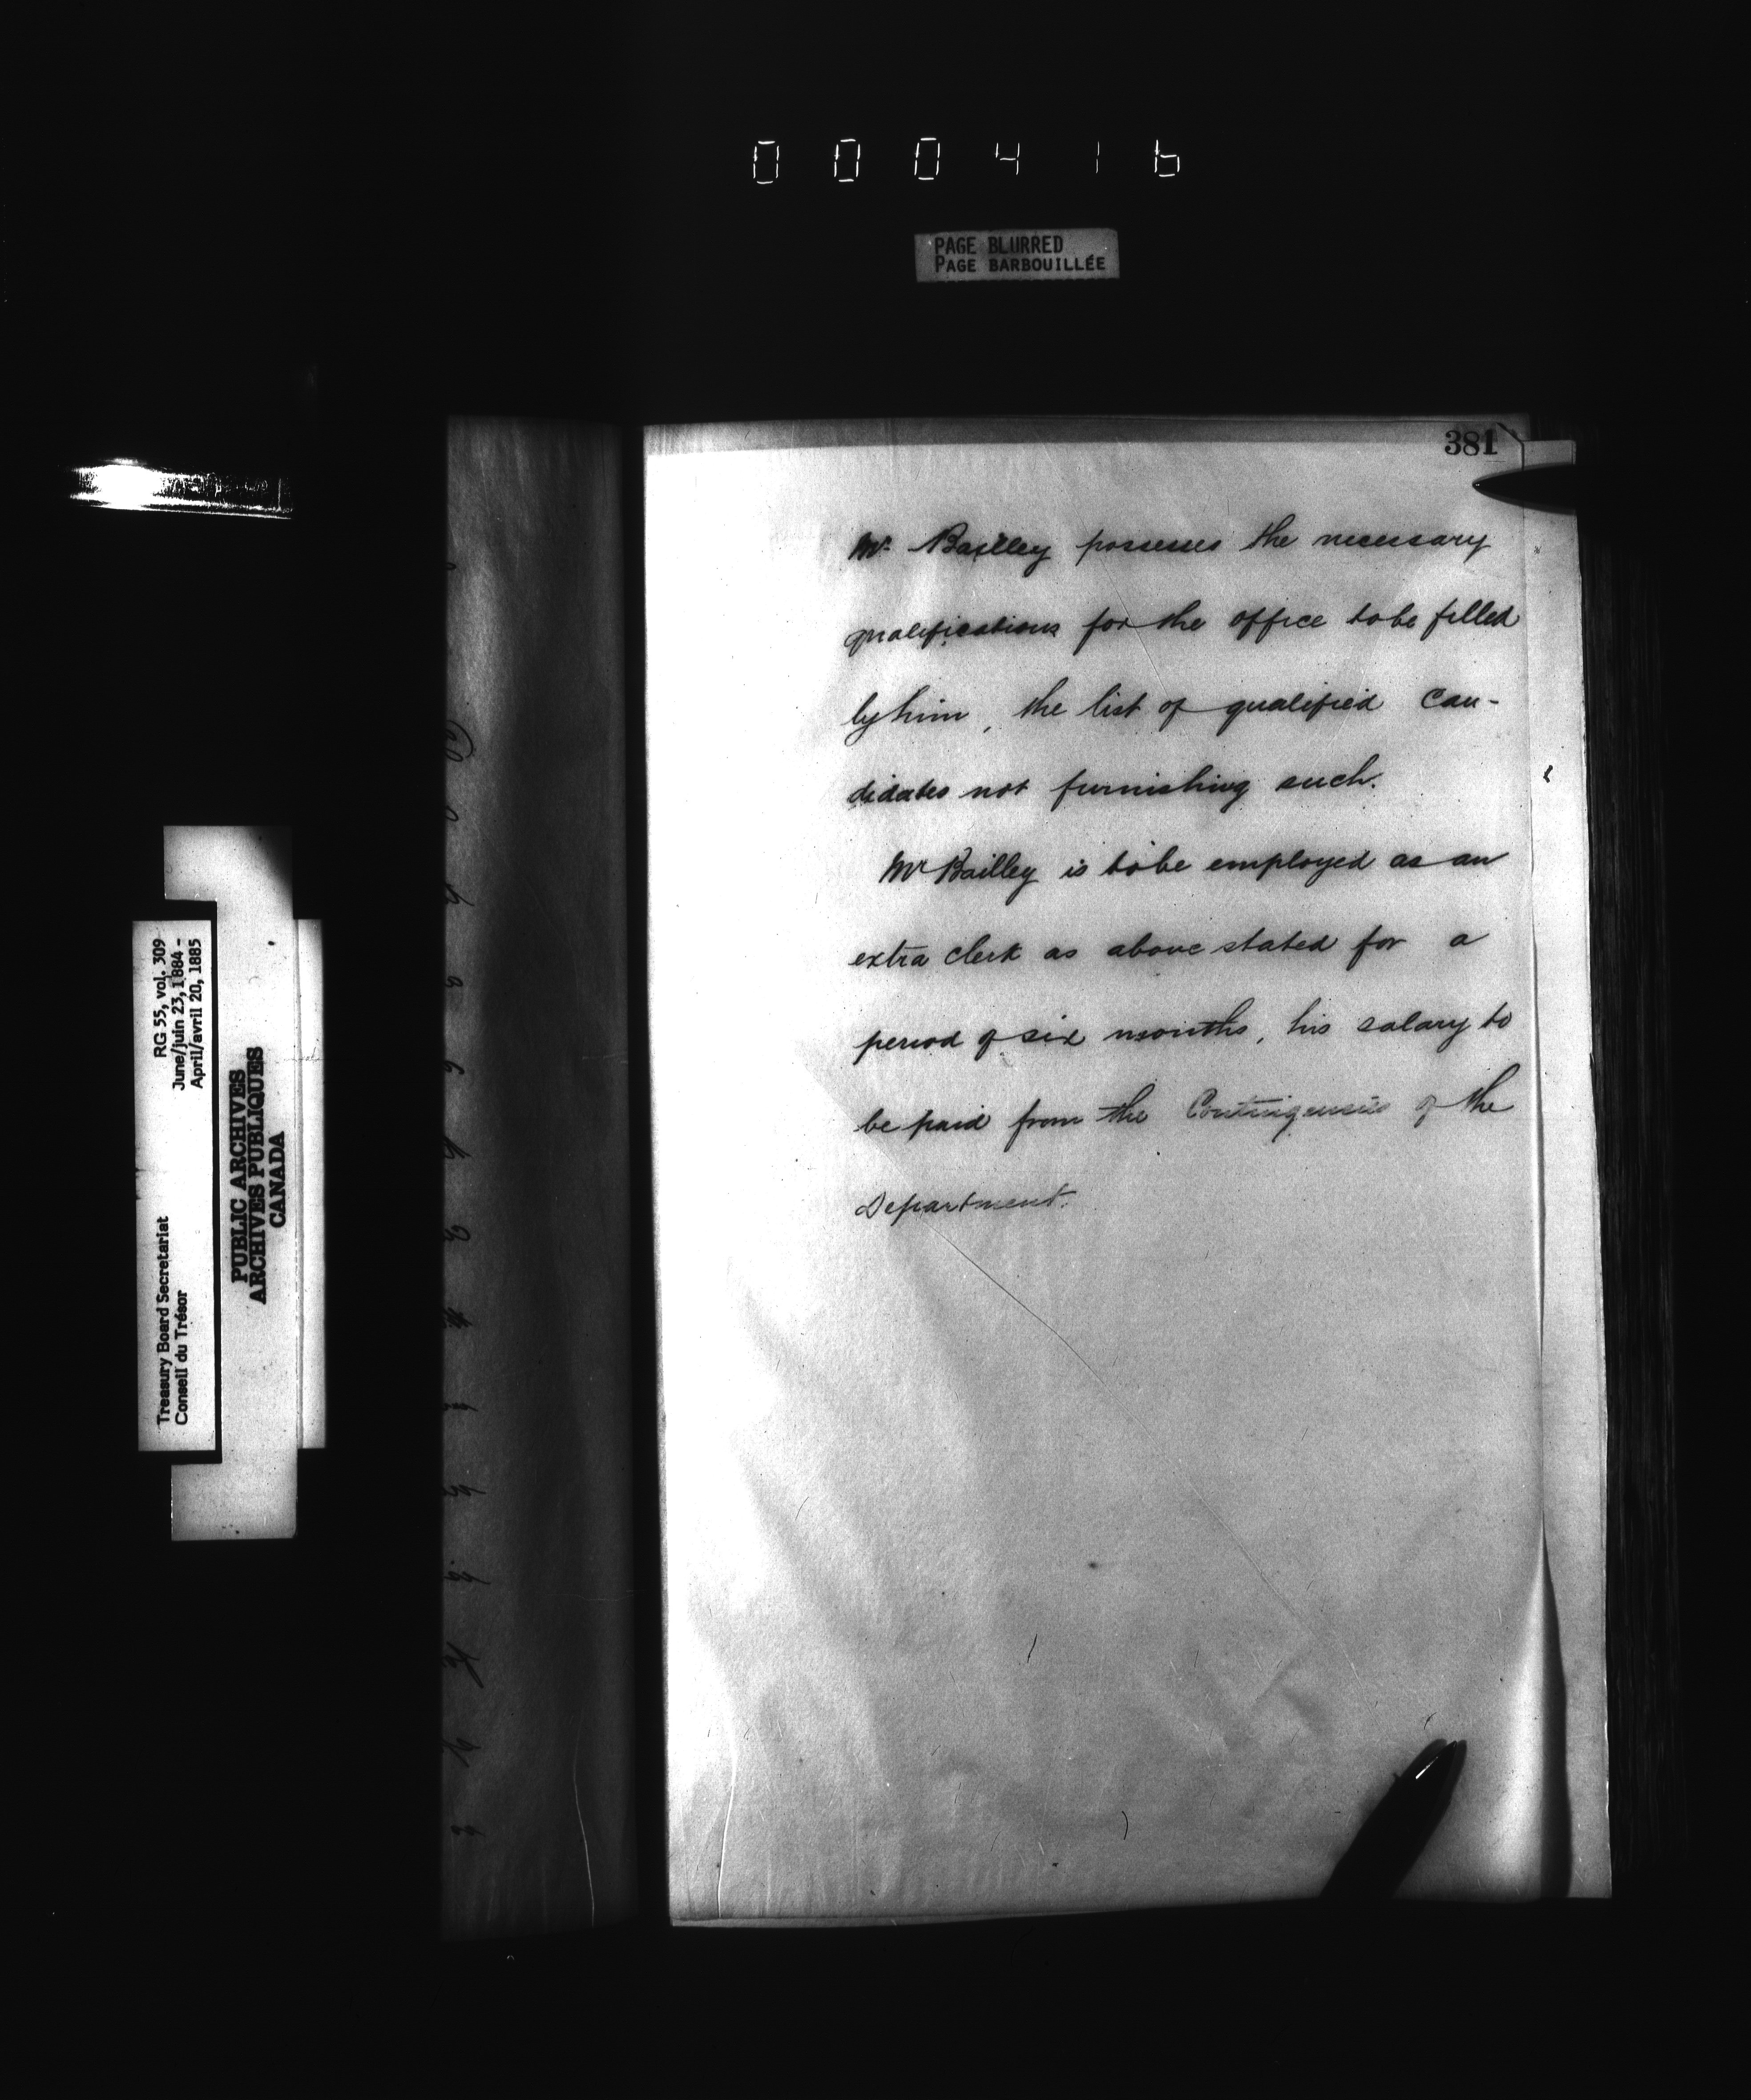 000416
PAGE BLURRED
PAGE BARBOUILLÉE
381
Mr. Bailley possesses the necessary
qualifications for the office to be filled
by him, the list of qualified Can-
didates not furnishing such.
Mr Bailley is to be employed as an
extra clerk as above stated for a
period of six months, his salary to
be paid from the Contingencies of the
Department.
RG 55, vol. 309
June/juin 23, 1884 -
April/avril 20, 1885
Treasury Board Secretariat
Conseil du Trésor
PUBLIC ARCHIVES
ARCHIVES PUBLIQUES
CANADA